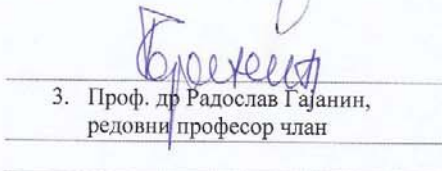 3. Проф. др Радослав Гајанин,
редовни професор члан